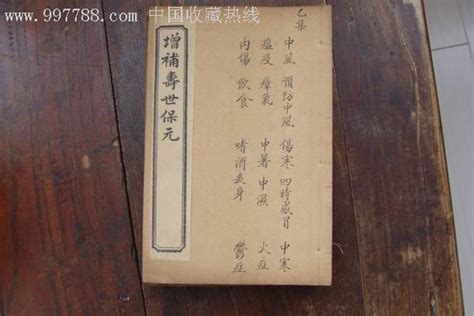 www.997788.com 中国收藏热线
乙集
中風 預防中風 傷寒 四時感冒 中寒
瘟疫 瘴氣 中暑 中濕 火症
内傷 飲食 嗜酒丧身 鬱症
增補壽世保元